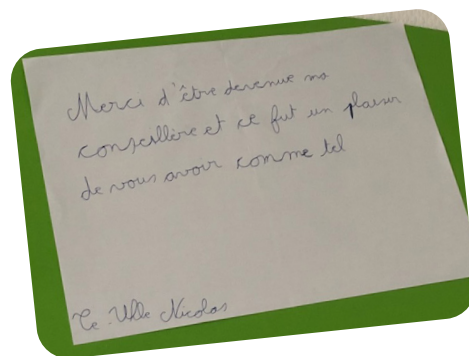 Merci d'être devenue ma
conseillère et ce fut un plaisir
de vous avoir comme tel
Nicolas